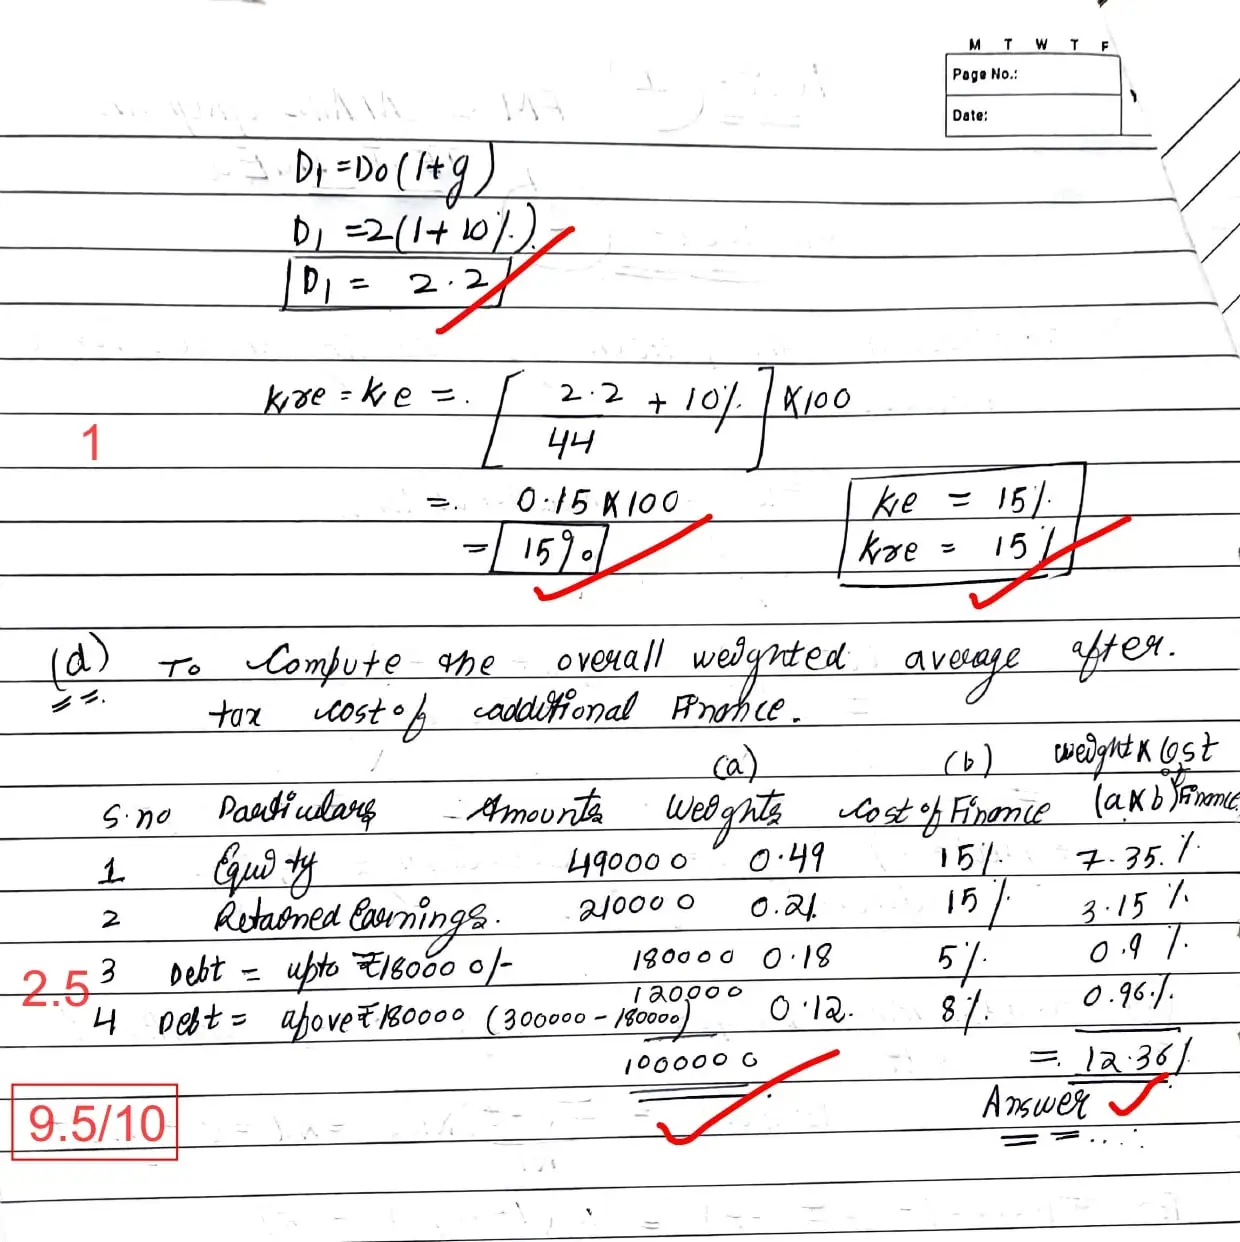 M T W T F
Page No.:
Date:
D1 = D0 (1+g)
D1 = 2(1+10%)
D1 = 2.2
Kre = Ke = [2.2/44 + 10%] X100
1
= 0.15 X 100
= 15%
Ke = 15%
Kre = 15%
(d) To Compute the overall weighted average after
tax cost of additional Finance.
(a) (b) weight X Cost of Finance
S.no Particulars Amounts Weights Cost of Finance (aXb)
1 Equity 490000 0.49 15% 7.35%
2 Retained Earnings. 210000 0.21 15% 3.15%
3 Debt = upto ₹180000/- 180000 0.18 5% 0.9%
2.5
4 Debt = above ₹180000 (300000-180000) 120000 0.12 8% 0.96%
1000000 = 12.36%
Answer
9.5/10